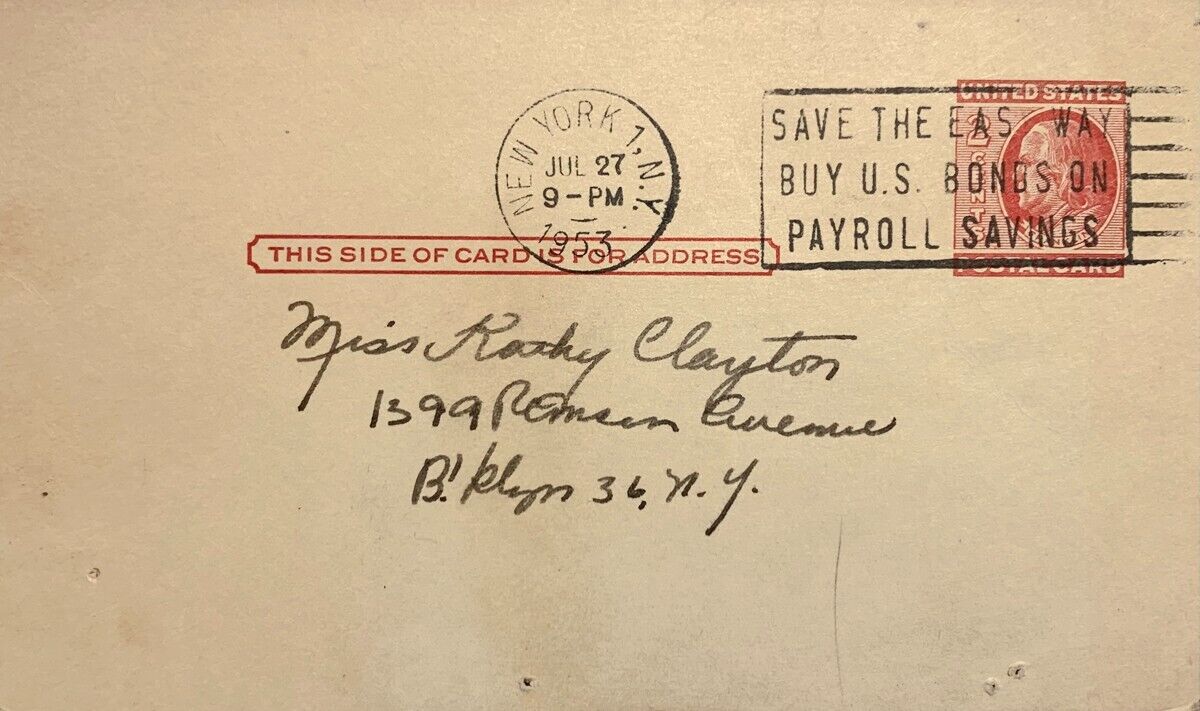 NEW YORK 1, N.Y.
JUL 27
9-PM
1953
SAVE THE EAS WAY
BUY U.S. BONDS ON
PAYROLL SAVINGS
UNITED STATES
2 CENTS
POSTAL CARD
THIS SIDE OF CARD IS FOR ADDRESS
Miss Kathy Clayton
1399 Remsen Avenue
B'klyn 36, N.Y.